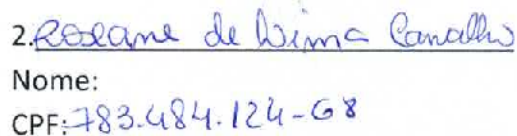 2. Roseane de Lima Carvalho
Nome:
CPF: 783.484.124-68